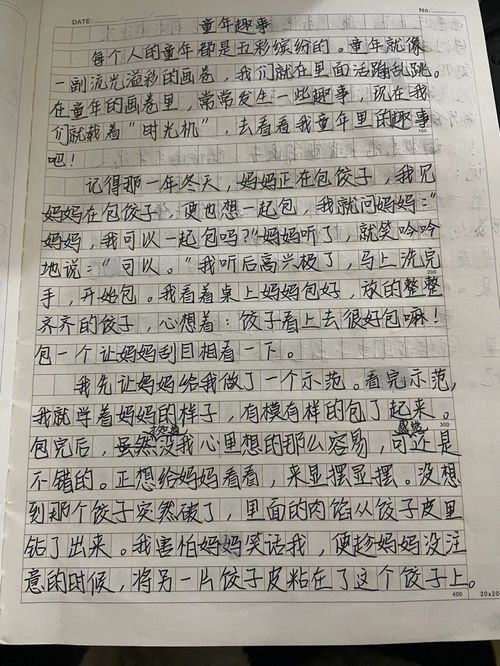 DATE: No.
童年趣事
每个人的童年都是五彩缤纷的。童年就像
一副流光溢彩的画卷，我们就在里面活蹦乱跳。
在童年的画卷里，常常发生一些趣事，现在我
们就载着“时光机”，去看看我童年里的趣事
100
吧！
记得那一年冬天，妈妈正在包饺子，我见
妈妈在包饺子，便也想一起包，我就问妈妈：“
妈妈，我可以一起包吗？”妈妈听了，就笑吟吟
地说：“可以。”我听后高兴极了，马上洗完
200
手，开始包。我看着桌上妈妈包好，放的整整
齐齐的饺子，心想着：饺子看上去很好包嘛！
包一个让妈妈刮目相看一下。
我先让妈妈给我做了一个示范。看完示范，
我就学着妈妈的样子，有模有样的包了起来。
300
包完后，虽然没我心里想的那么容易，可还是
不错的。正想给妈妈看看，来显摆显摆。没想
到那个饺子突然破了，里面的肉馅从饺子皮里
钻了出来。我害怕妈妈笑话我，便趁妈妈没注
意的时候，将另一片饺子皮粘在了这个饺子上。
400 20x20